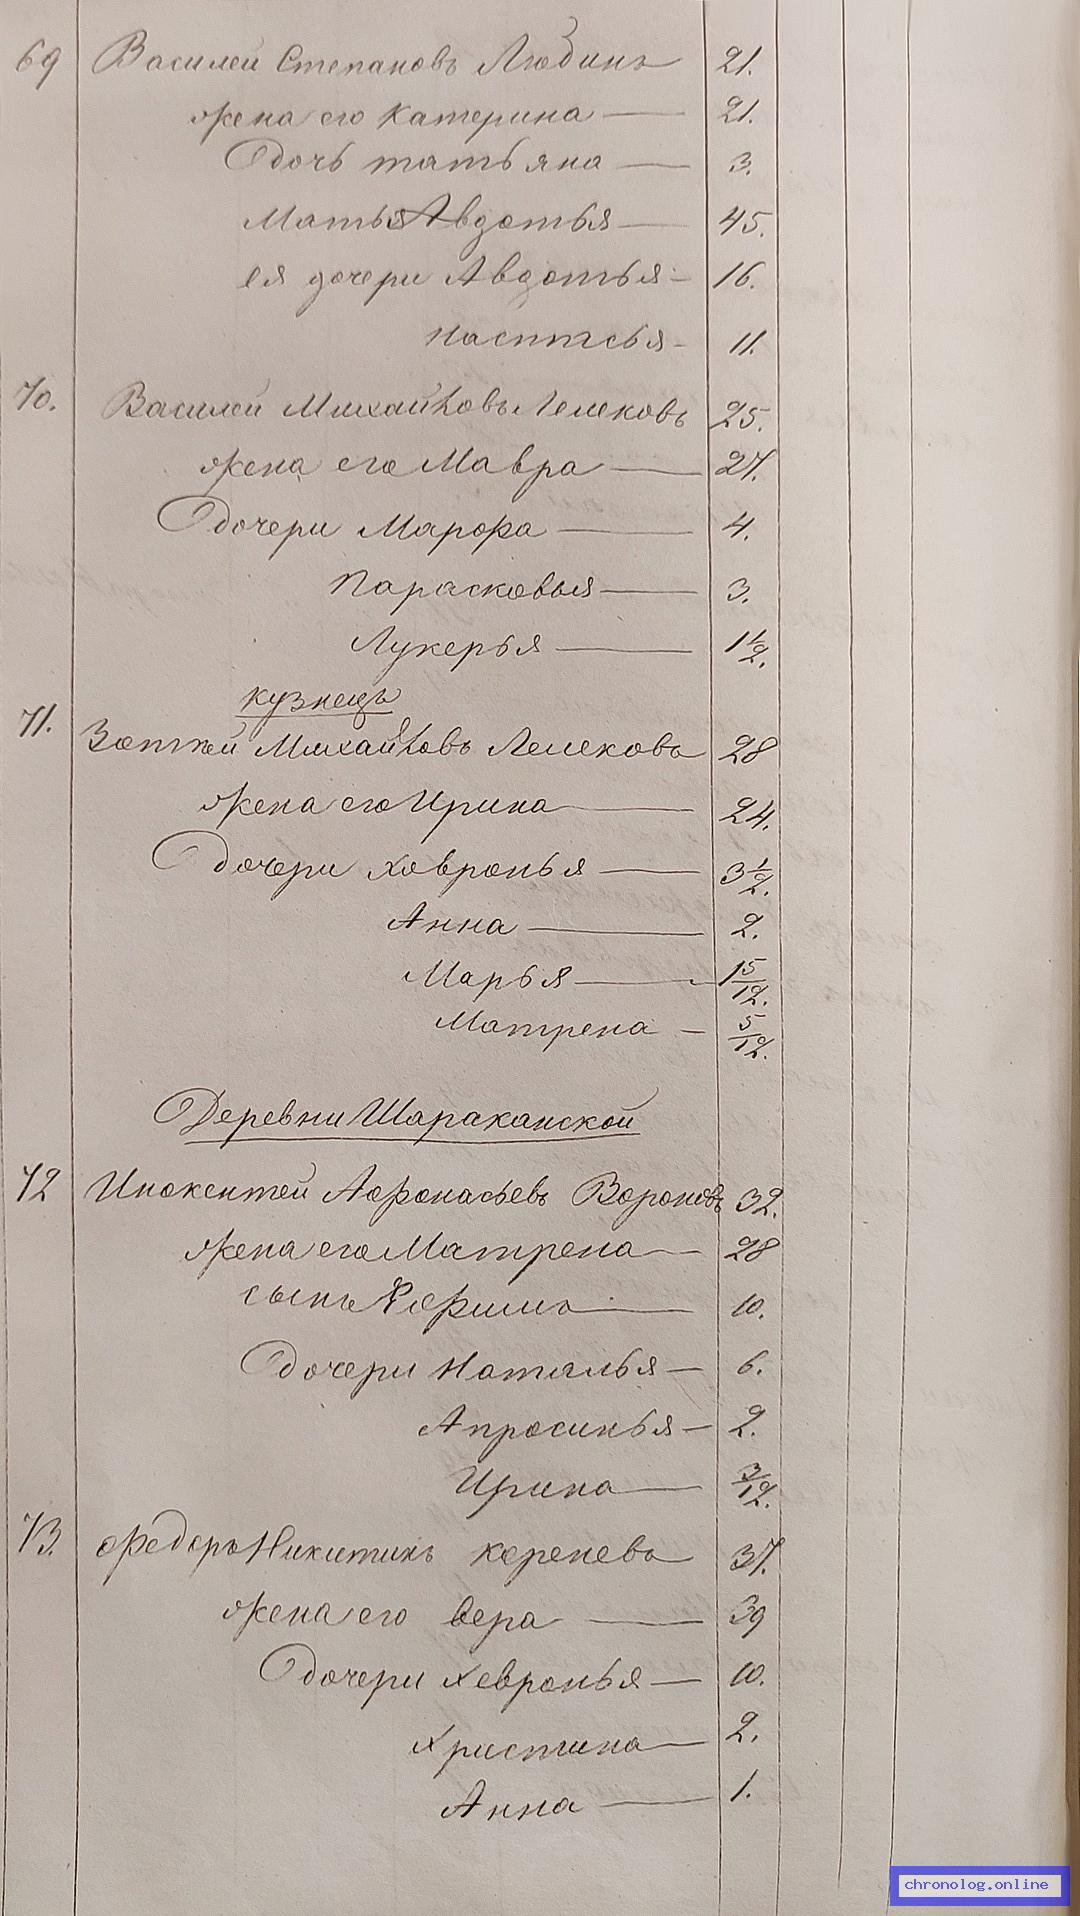 69 Василей Степановъ Любинъ 21.
жена его Катерина — 21.
дочь татьяна — 3.
Мать Авдотья — 45.
ея дочери Авдотья - 16.
Настасья - 11.
70. Василей Михайловъ Лелековъ 25.
жена его Мавра — 27.
дочери Марфа — 4.
Парасковья — 3.
Лукерья — 1 1/2.
кузнецъ
71. Михайловъ Лелековъ 28
жена его Ирина — 24.
дочери Ховронья — 3 1/2.
Анна — 2.
Марья — 1 5/12.
Матрена — 5/12.
Деревни Шараканской
72 Инокентей Афонасьевъ Вороновъ 32.
жена его Матрена — 28
сынъ Ефимъ — 10.
дочери Наталья — 6.
Апросинья — 2.
Ирина — 3/12.
73. Федоръ Никитинъ Кореневъ 37.
жена его вера — 39
дочери Хевронья — 10.
Христина — 2.
Анна — 1.
chronolog.online